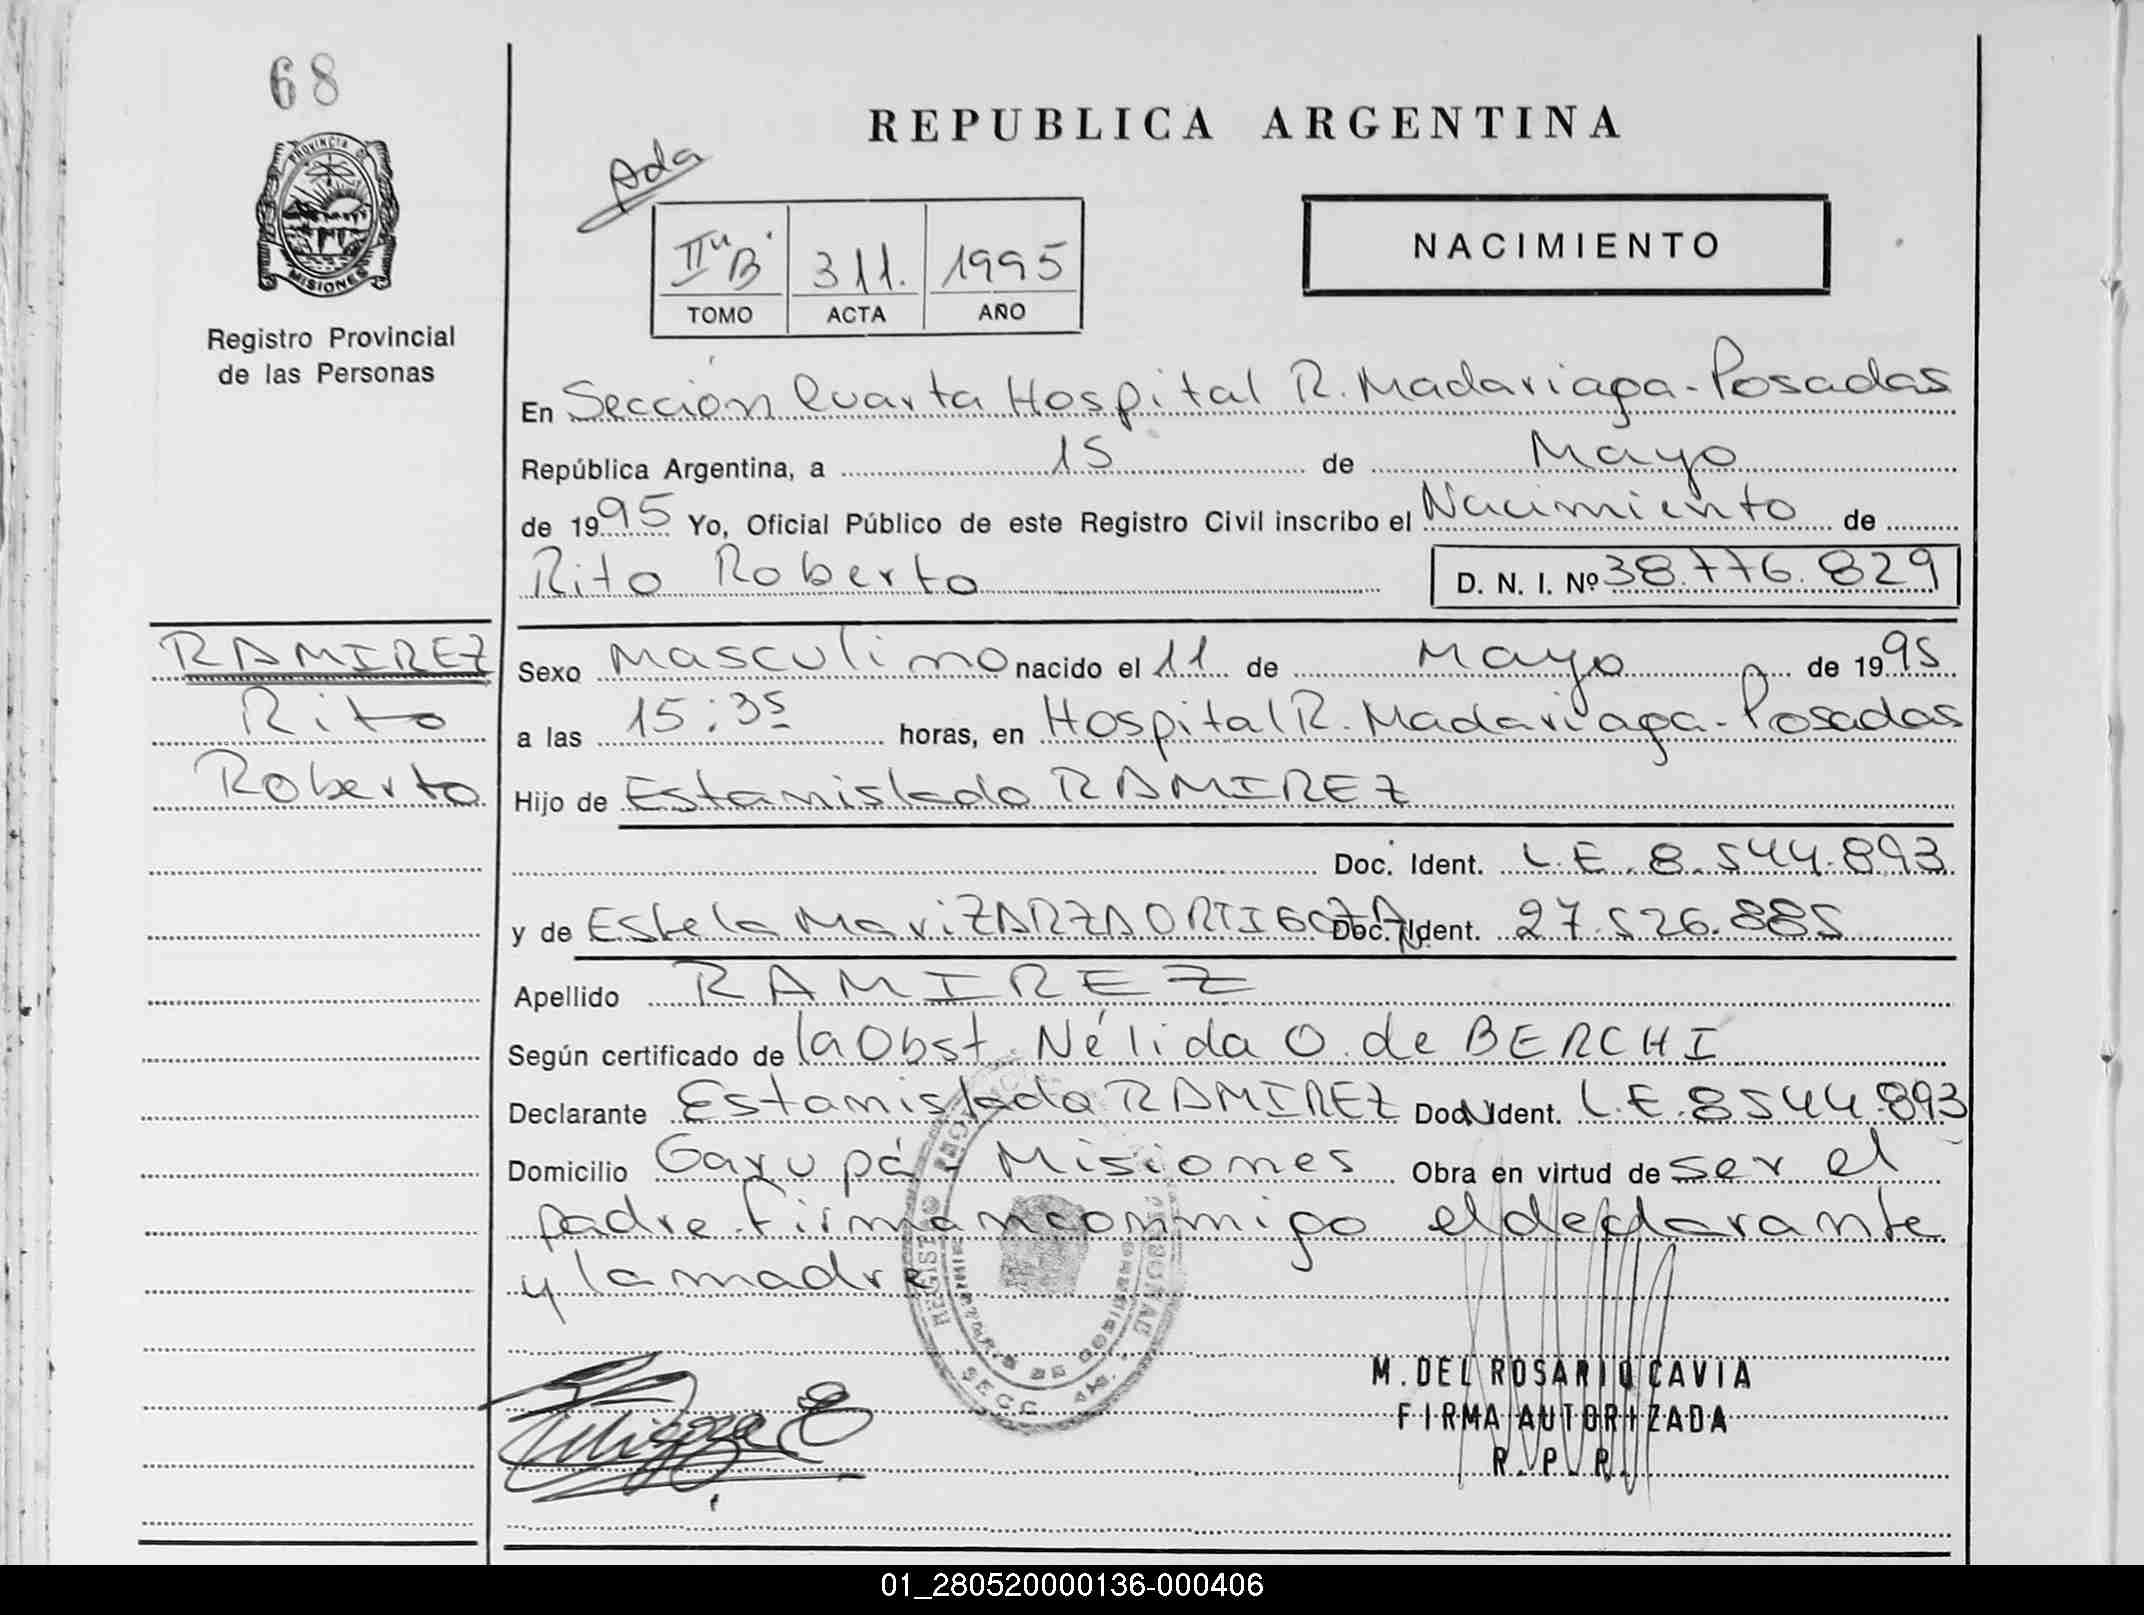 68
PROVINCIA DE
MISIONES
Registro Provincial
de las Personas
RAMIREZ
Rito
Roberto
REPUBLICA ARGENTINA
Ada
II "B" 311. 1995
TOMO ACTA AÑO
NACIMIENTO
En Sección Cuarta Hospital R. Madariaga - Posadas
República Argentina, a 15 de Mayo
de 1995 Yo, Oficial Público de este Registro Civil inscribo el Nacimiento de
Rito Roberto D. N. I. Nº 38.776.829
Sexo Masculino nacido el 11 de Mayo de 1995
a las 15:35 horas, en Hospital R. Madariaga - Posadas
Hijo de Estanislado RAMIREZ
Doc. Ident. L.E. 8.544.893
y de Estela Mari ZARZA ORTIGOZA Doc. Ident. 27.526.885
Apellido RAMIREZ
Según certificado de la Obst. Nélida O. de BERCHI
Declarante Estanislado RAMIREZ Doc. Ident. L.E. 8544.893
Domicilio Garupá - Misiones Obra en virtud de ser el
padre. Firman conmigo el declarante
y la madre
M. DEL ROSARIO CAVIA
FIRMA AUTORIZADA
R. P. P.
01_280520000136-000406